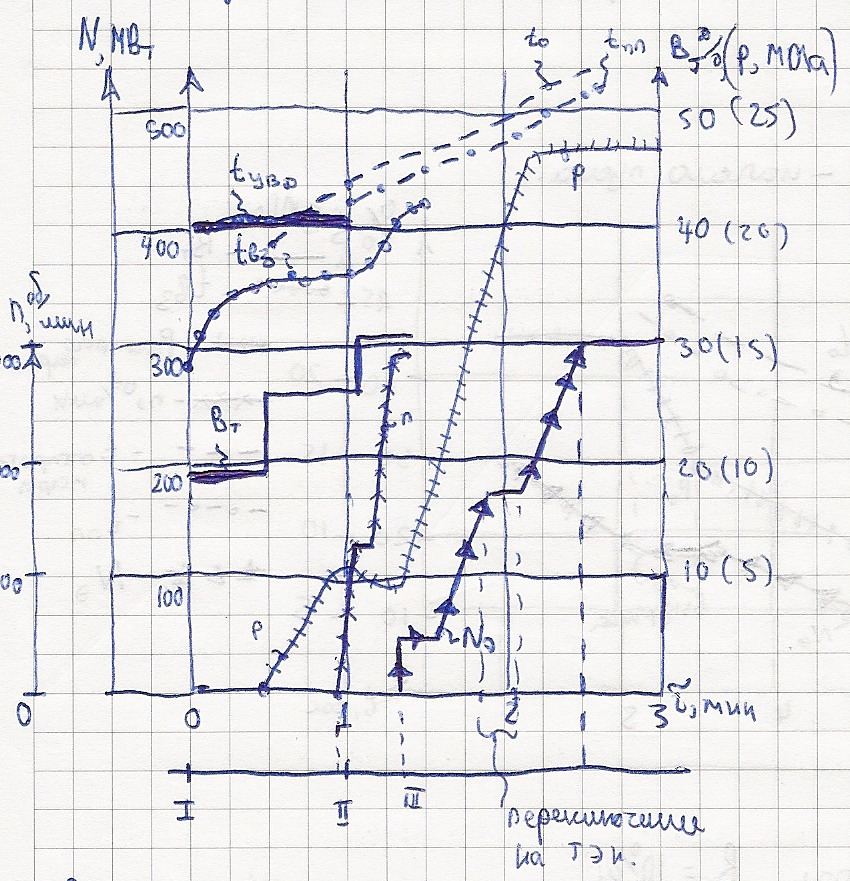 N, МВт
t₀
tпп
Bт % (p, МПа)
500
50 (25)
tувд
p
400
40 (20)
tвз
n, об/мин
00
300
30 (15)
n
Bт
00
200
20 (10)
00
100
10 (5)
p
Nэ
0
0
1
2
3
τ, мин
I
II
III
переключение
на ТЭн.